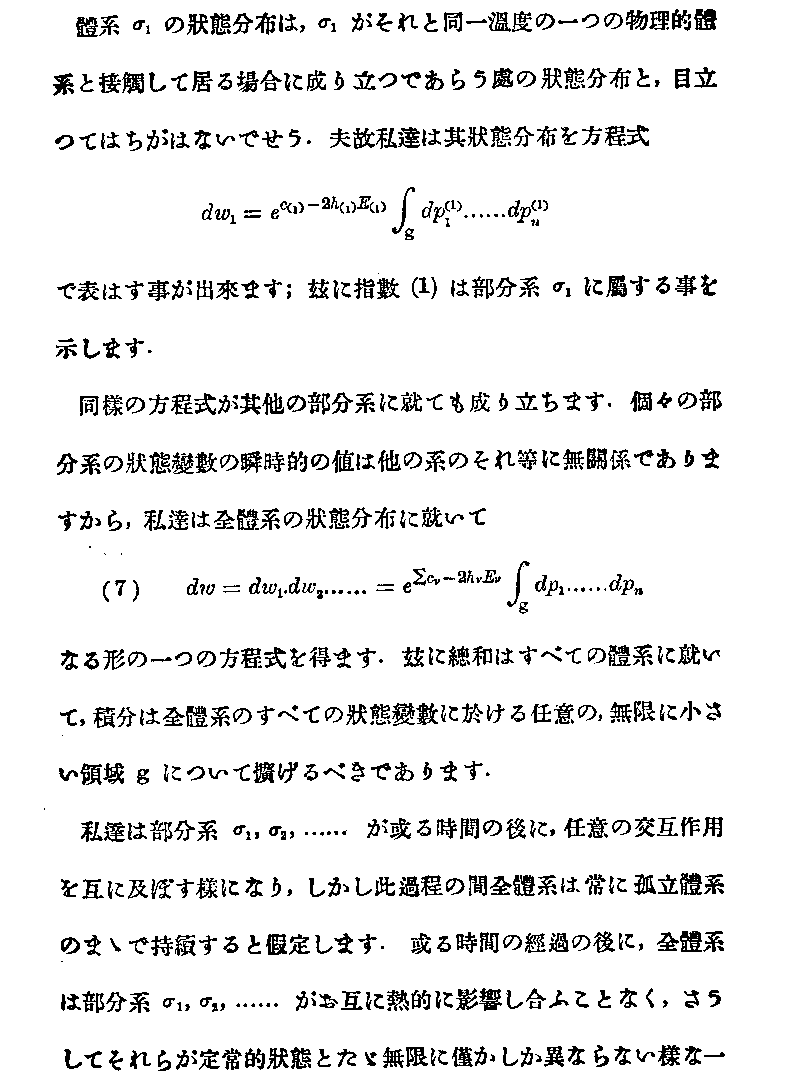 體系 σ₁ の狀態分布は, σ₁ がそれと同一溫度の一つの物理的體
系と接觸して居る場合に成り立つであらう處の狀態分布と, 目立
つてはちがはないでせう. 夫故私達は其狀態分布を方程式
dw₁ = e^{c₍₁₎−2h₍₁₎E₍₁₎} ∫_g dp₁⁽¹⁾......dpₙ⁽¹⁾
で表はす事が出來ます; 玆に指數 (1) は部分系 σ₁ に屬する事を
示します.
同樣の方程式が其他の部分系に就ても成り立ちます. 個々の部
分系の狀態變數の瞬時的の値は他の系のそれ等に無關係でありま
すから, 私達は全體系の狀態分布に就いて
(7) dw = dw₁.dw₂...... = e^{∑cᵥ−2hᵥEᵥ} ∫_g dp₁......dpₙ
なる形の一つの方程式を得ます. 玆に總和はすべての體系に就い
て, 積分は全體系のすべての狀態變數に於ける任意の, 無限に小さ
い領域 g について擴げるべきであります.
私達は部分系 σ₁, σ₂, ...... が或る時間の後に, 任意の交互作用
を互に及ぼす樣になり, しかし此過程の間全體系は常に孤立體系
のまゝで持續すると假定します. 或る時間の經過の後に, 全體系
は部分系 σ₁, σ₂, ...... がお互に熱的に影響し合ふことなく, さう
してそれらが定常的狀態とたゞ無限に僅かしか異ならない樣な一